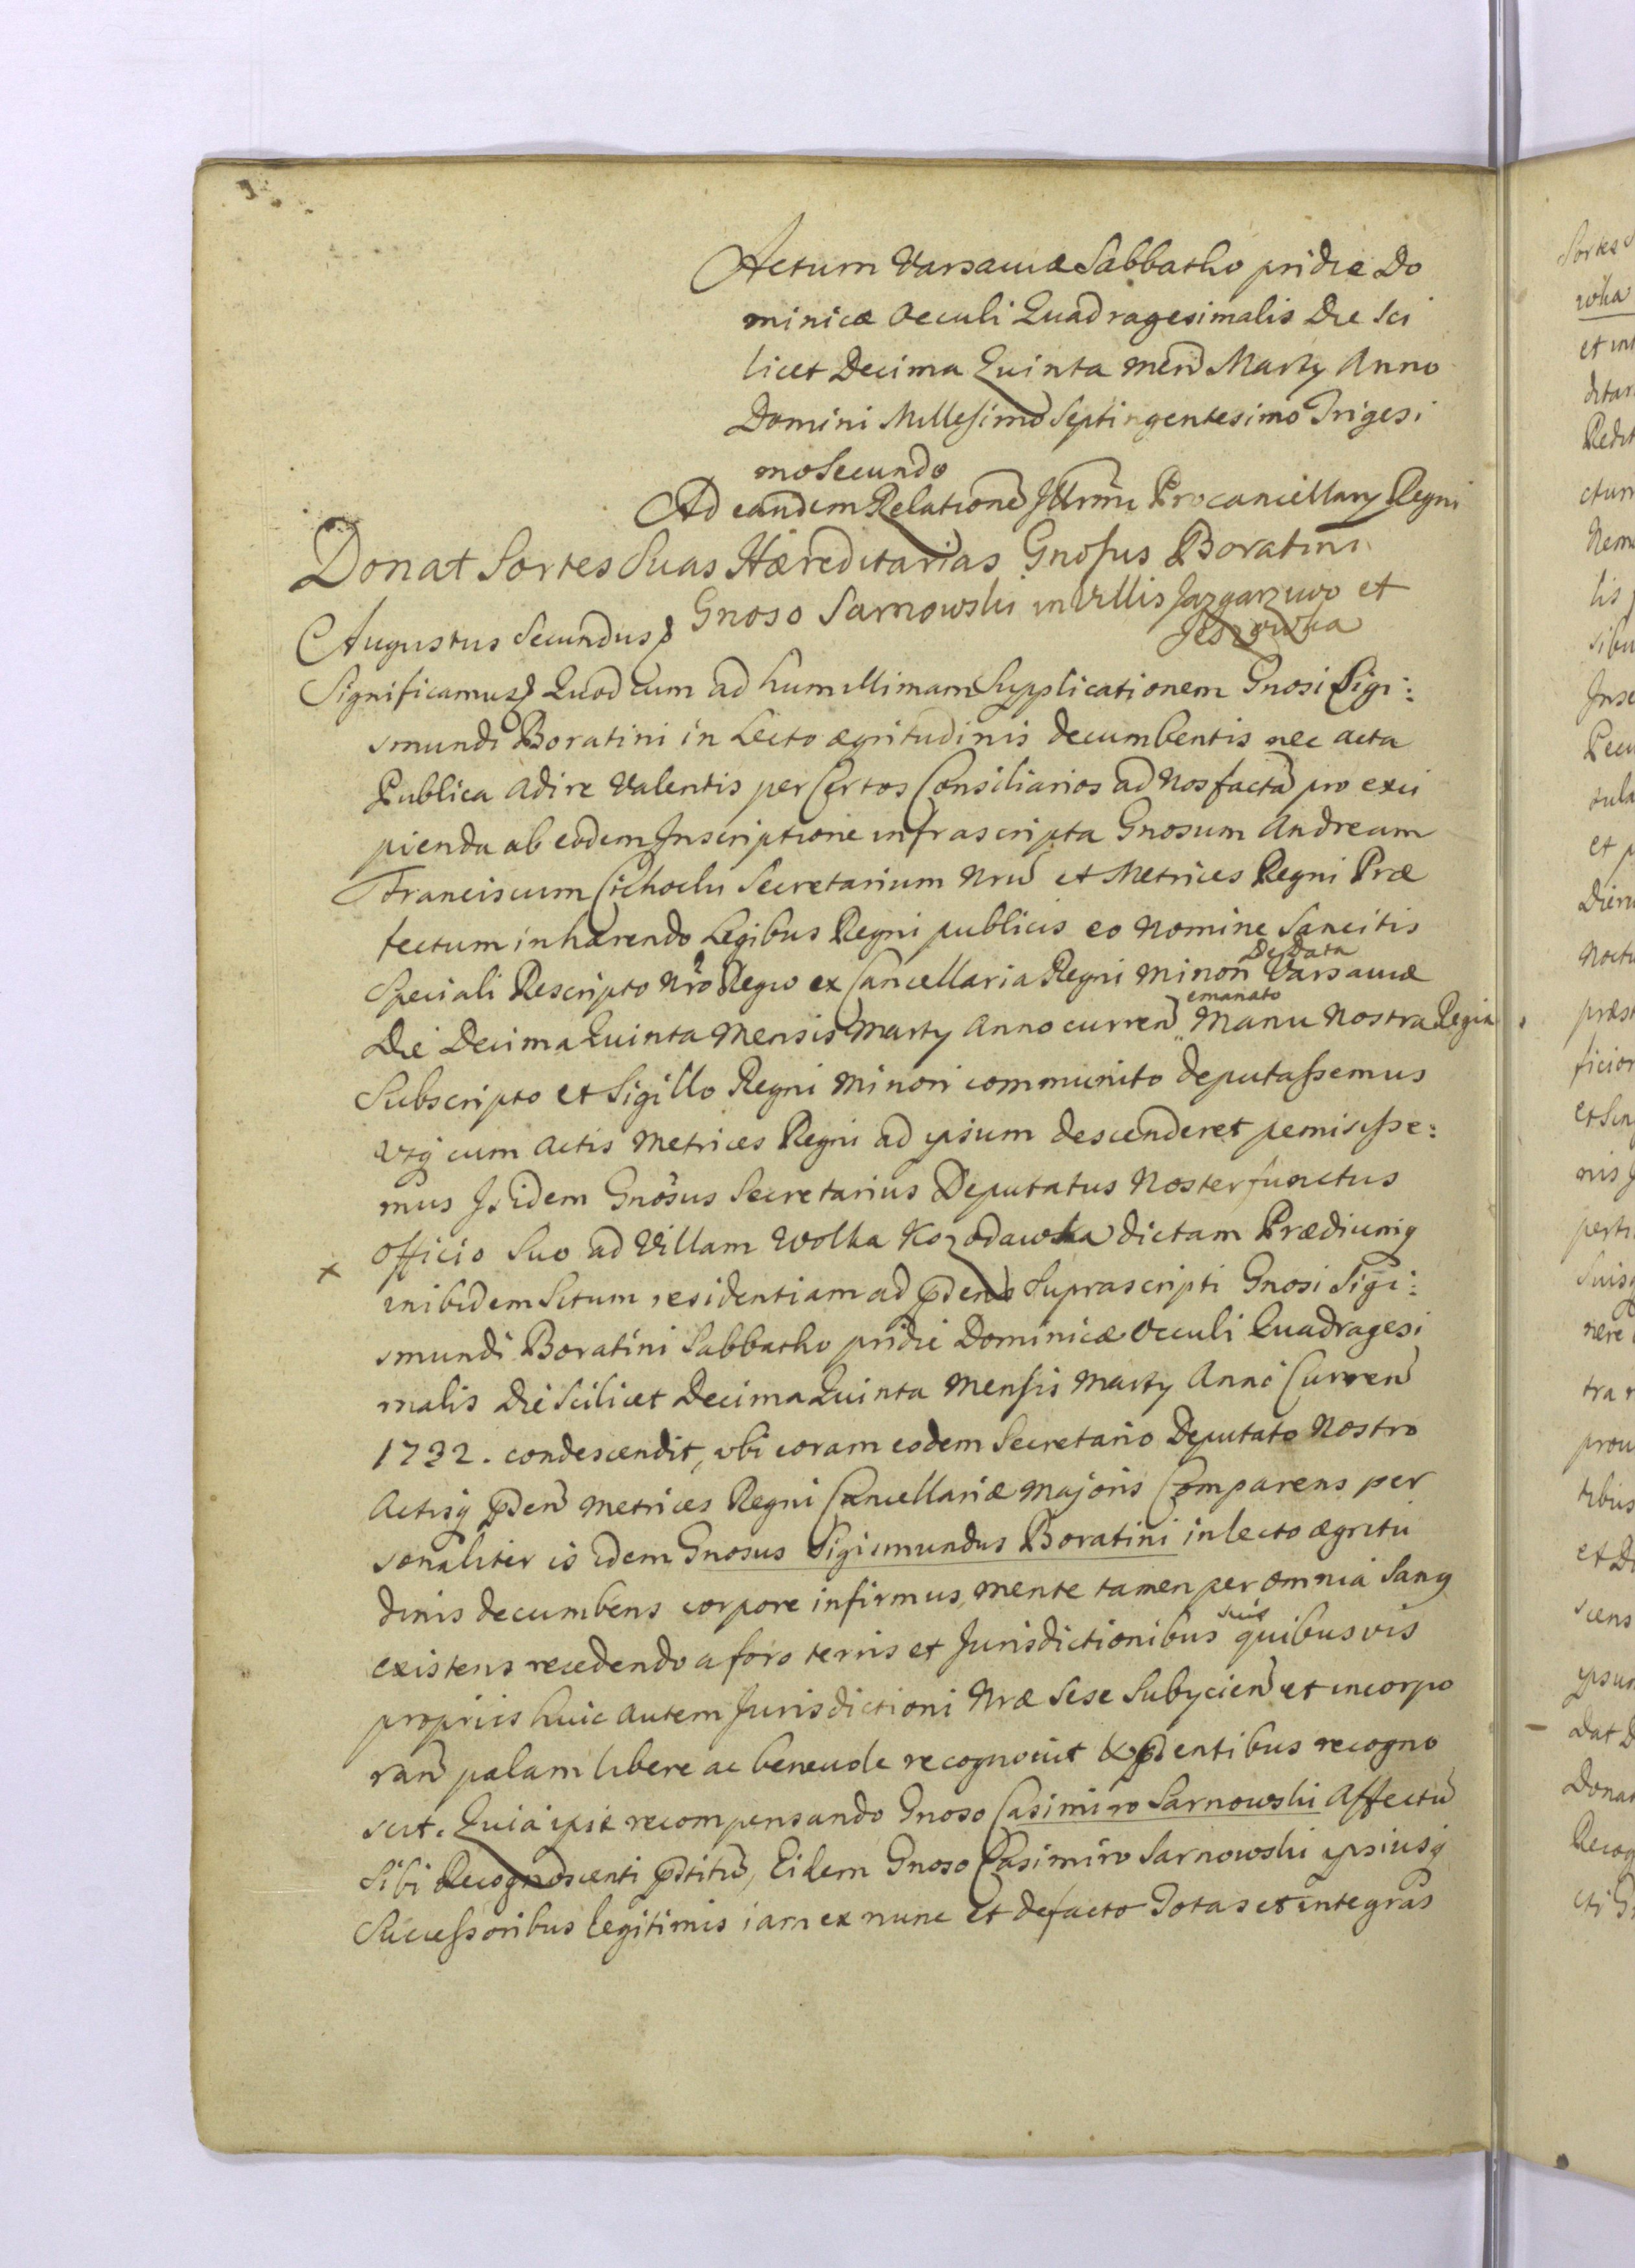 Actum Varsaviæ Sabbatho pridie Do
minicæ Occuli Quadragesimalis Die Sci
licet Decima Quinta Men̄ Martÿ Anno
Domini Millesimo Septingentesimo Trigesi
mo Secundo
Ad eandem Relationē Jllrm̄i Procancellarÿ Regni
Donat Sortes Suas Hæreditarias Gnosus Boratini
Gnoso Sarnowski in Villis Jazgarzewo et
Augustus Secundus
Significamus Quod cum ad humillimam Supplicationem Gnosi Sigi:
smundi Boratini in Lecto ægritudinis decumbentis nec acta
Publica adire Valentis per Certos Consiliarios ad Nos factā pro exci
pienda ab eodem Jnscriptione infrascripta Gnosum Andream
Franciscum Cichocki Secretarium Nrū et Metrices Regni Præ
fectum inhærendo Legibus Regni publicis eo Nomine Sancitis
De Data
Speciali Rescripto Nrō Regio ex Cancellaria Regni Minori Varsaviæ
emanato
Die Decima Quinta Mensis Martÿ Anno curren̄ Manu Nostra Regia
Subscripto et Sigillo Regni Minori communito deputassemus
Vtq cum Actis Metrices Regni ad ipsum descenderet pemisisse:
mus Jsidem Gnosus Secretarius Deputatus Noster functus
x Officio Suo ad Villam Wolka Kozodawska dictam Prædiumq
inibidem Situm residentiam ad p̄dens Suprascripti Gnosi Sigi:
smundi Boratini Sabbatho pridie Dominicæ Occuli Quadragesi
malis die Scilicet Decima Quinta Mensis Martÿ Anni Curren̄
1732. condescendit, vbi coram eodem Secretario Deputato Nostro
Actisq p̄den̄ Metrices Regni Cancellariæ Majoris Comparens per
sonaliter is idem Gnosus Sigismundus Boratini in lecto ægritu
dinis decumbens corpore infirmus, mente tamen per omnia Sanq
suis
existens recedendo a foro terris et Jurisdictionibus quibusvis
propriis huic autem Jurisdictioni Nræ Sese Subÿcien̄ et incorpo
ran̄ palam libere ac benevole recognovit & p̄dentibus recogno
scit. Quia ipse recompensando Gnoso Casimiro Sarnowski Affectū
Sibi Recognoscenti p̄stitū, Eidem Gnoso Casimiro Sarnowski ipsiusq
Successoribus legitimis iam ex nunc Et de facto Totas et integras